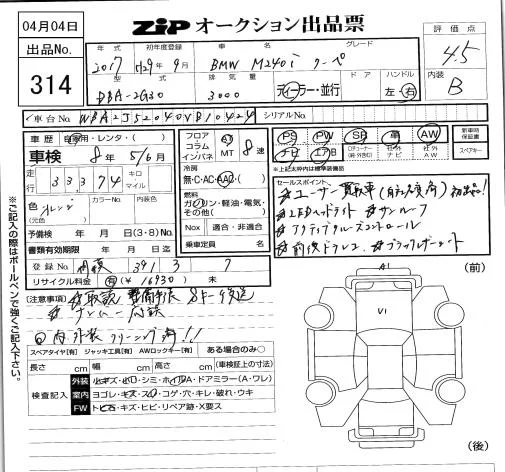 04月04日
出品No.
314
ZIP オークション出品票
評価点
4.5
内装
B
年式 初年度登録 車名 グレード
2017 H29年9月 BMW M240i クーペ
型式 排気量 ドア ハンドル
DBA-2G30 3000 ディーラー・並行 左・右
車台No. WBA2J52040VB10424 シリアルNo.
車歴 自家用・レンタ・( )
車検 8年 5/6月
走行 33374 キロ マイル
色 (元色) オレンジ カラーNo. 内装色
予備検 年 月 日(3・8)No.
書類有効期限 年 月 日迄
登録No. 391 3 7
リサイクル料金 有(¥16930) 未
フロア コラム インパネ AT MT 8速
冷房 無・C・AC・AAC( )
燃料 ガソリン・軽油・電気・その他( )
Nox 適合・非適合
乗車定員 名
PS PW SR 革 AW
ナビ エアB 社外ナビ 社外AW
新車時保証書
スペアキー
※上記太枠内は装備補償
セールスポイント、
ユーザー買取車
LEDヘッドライト サンルーフ
アクティブクルーズコントロール
前後ドラレコ ブラックキドニーグリル
(注意事項) 取説 整備手帳 スペアキー後送
内外装クリーニング済!!
スペアタイヤ[有] ジャッキ工具[有] AWロックキー[有] ある場合のみ○
長さ cm 幅 cm 高さ cm (車検証上の寸法)
検査記入
外装 小キズ・凹・シミ・ホイルA・ドアミラー(A・ワレ)
室内 ヨゴレ・キズ・スレ・コゲ・穴・キレ・破れ・ウキ
FW トビ石・キズ・ヒビ・リペア跡・X要ス
※ご記入の際はボールペンで強くご記入下さい。
A1
(前)
V1
(後)